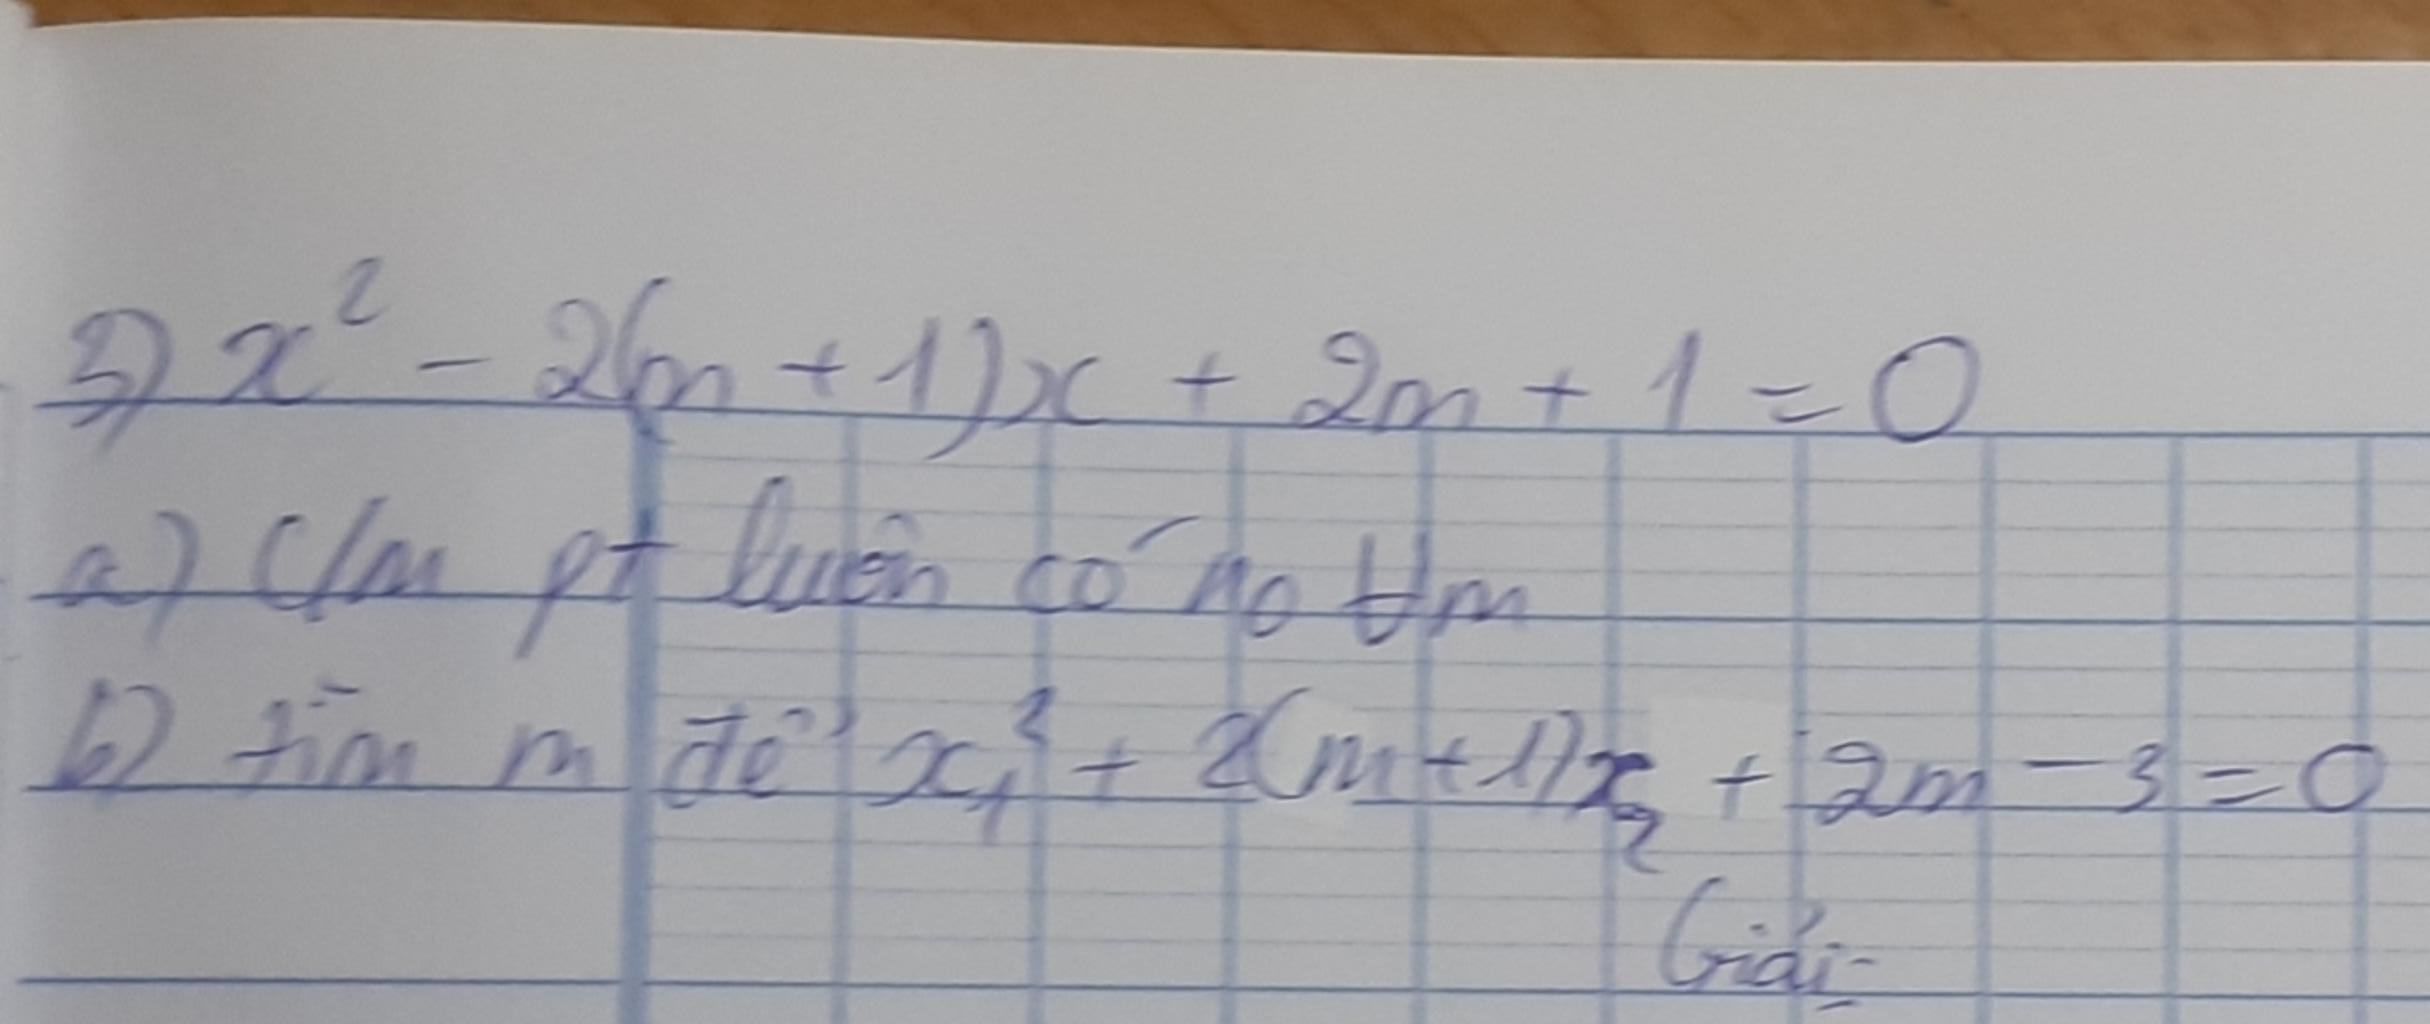 3) x² - 2(m + 1)x + 2m + 1 = 0
a) C/m pt luôn có no ∀m
b) tìm m để x₁² + 2(m + 1)x₂ + 2m - 3 = 0
Giải